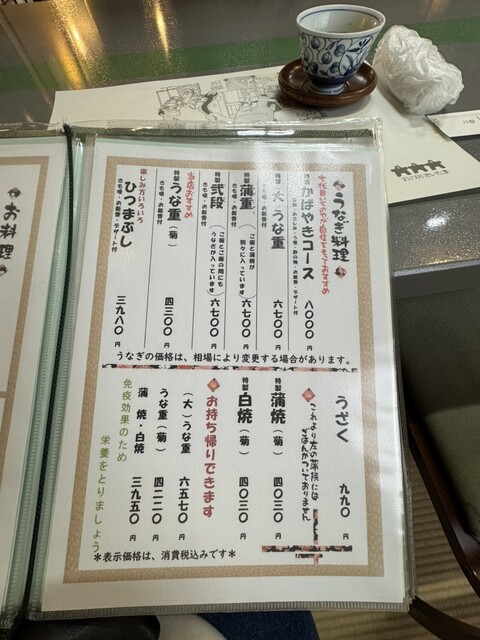 うなぎ料理
かばやきコース 八〇〇〇円
特製 (大)うな重 六七〇〇円
きも吸・お新香付
特製 蒲重 (ご飯と蒲焼が別々に入っています) 六七〇〇円
きも吸・お新香付
特製 弐段 (ご飯とご飯の間にもうなぎが入っています) 六七〇〇円
きも吸・お新香付
当店おすすめ
特製 うな重(菊) 四三〇〇円
きも吸・お新香付
楽しみ方いろいろ
ひつまぶし 三九八〇円
きも吸・お新香・デザート付
うなぎの価格は、相場により変更する場合があります。
うざく 九九〇円
これより左の蒲焼には
ごはんがついておりません
特製 蒲焼(菊) 四〇三〇円
特製 白焼(菊) 四〇三〇円
お持ち帰りできます
(大)うな重 六五七〇円
うな重(菊) 四二二〇円
蒲焼・白焼 三九五〇円
免疫効果のため
栄養をとりましょう
*表示価格は、消費税込みです*
お料理